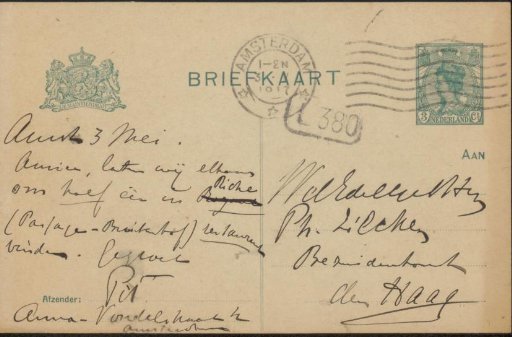 AMSTERDAM
1-2N
1917
BRIEFKAART
L 380
3 Ct
NEDERLAND
AAN
Amst 3 Mei.
Amice, laten wij elkaar
om half één in Riche
(Passage - Buitenhof) restaurant
vinden. Gegroet
Pit
Afzender:
Anna-Vondelstraat
Amsterdam
WelEdelgeb. Heer
Ph. Zilcken
Bezuidenhout
den Haag